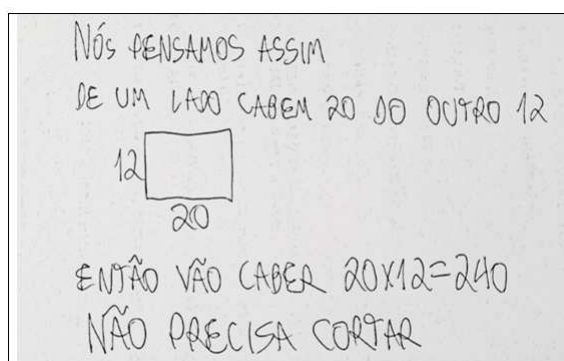 NÓS PENSAMOS ASSIM
DE UM LADO CABEM 20 DO OUTRO 12
12
20
ENTÃO VÃO CABER 20X12=240
NÃO PRECISA CORTAR